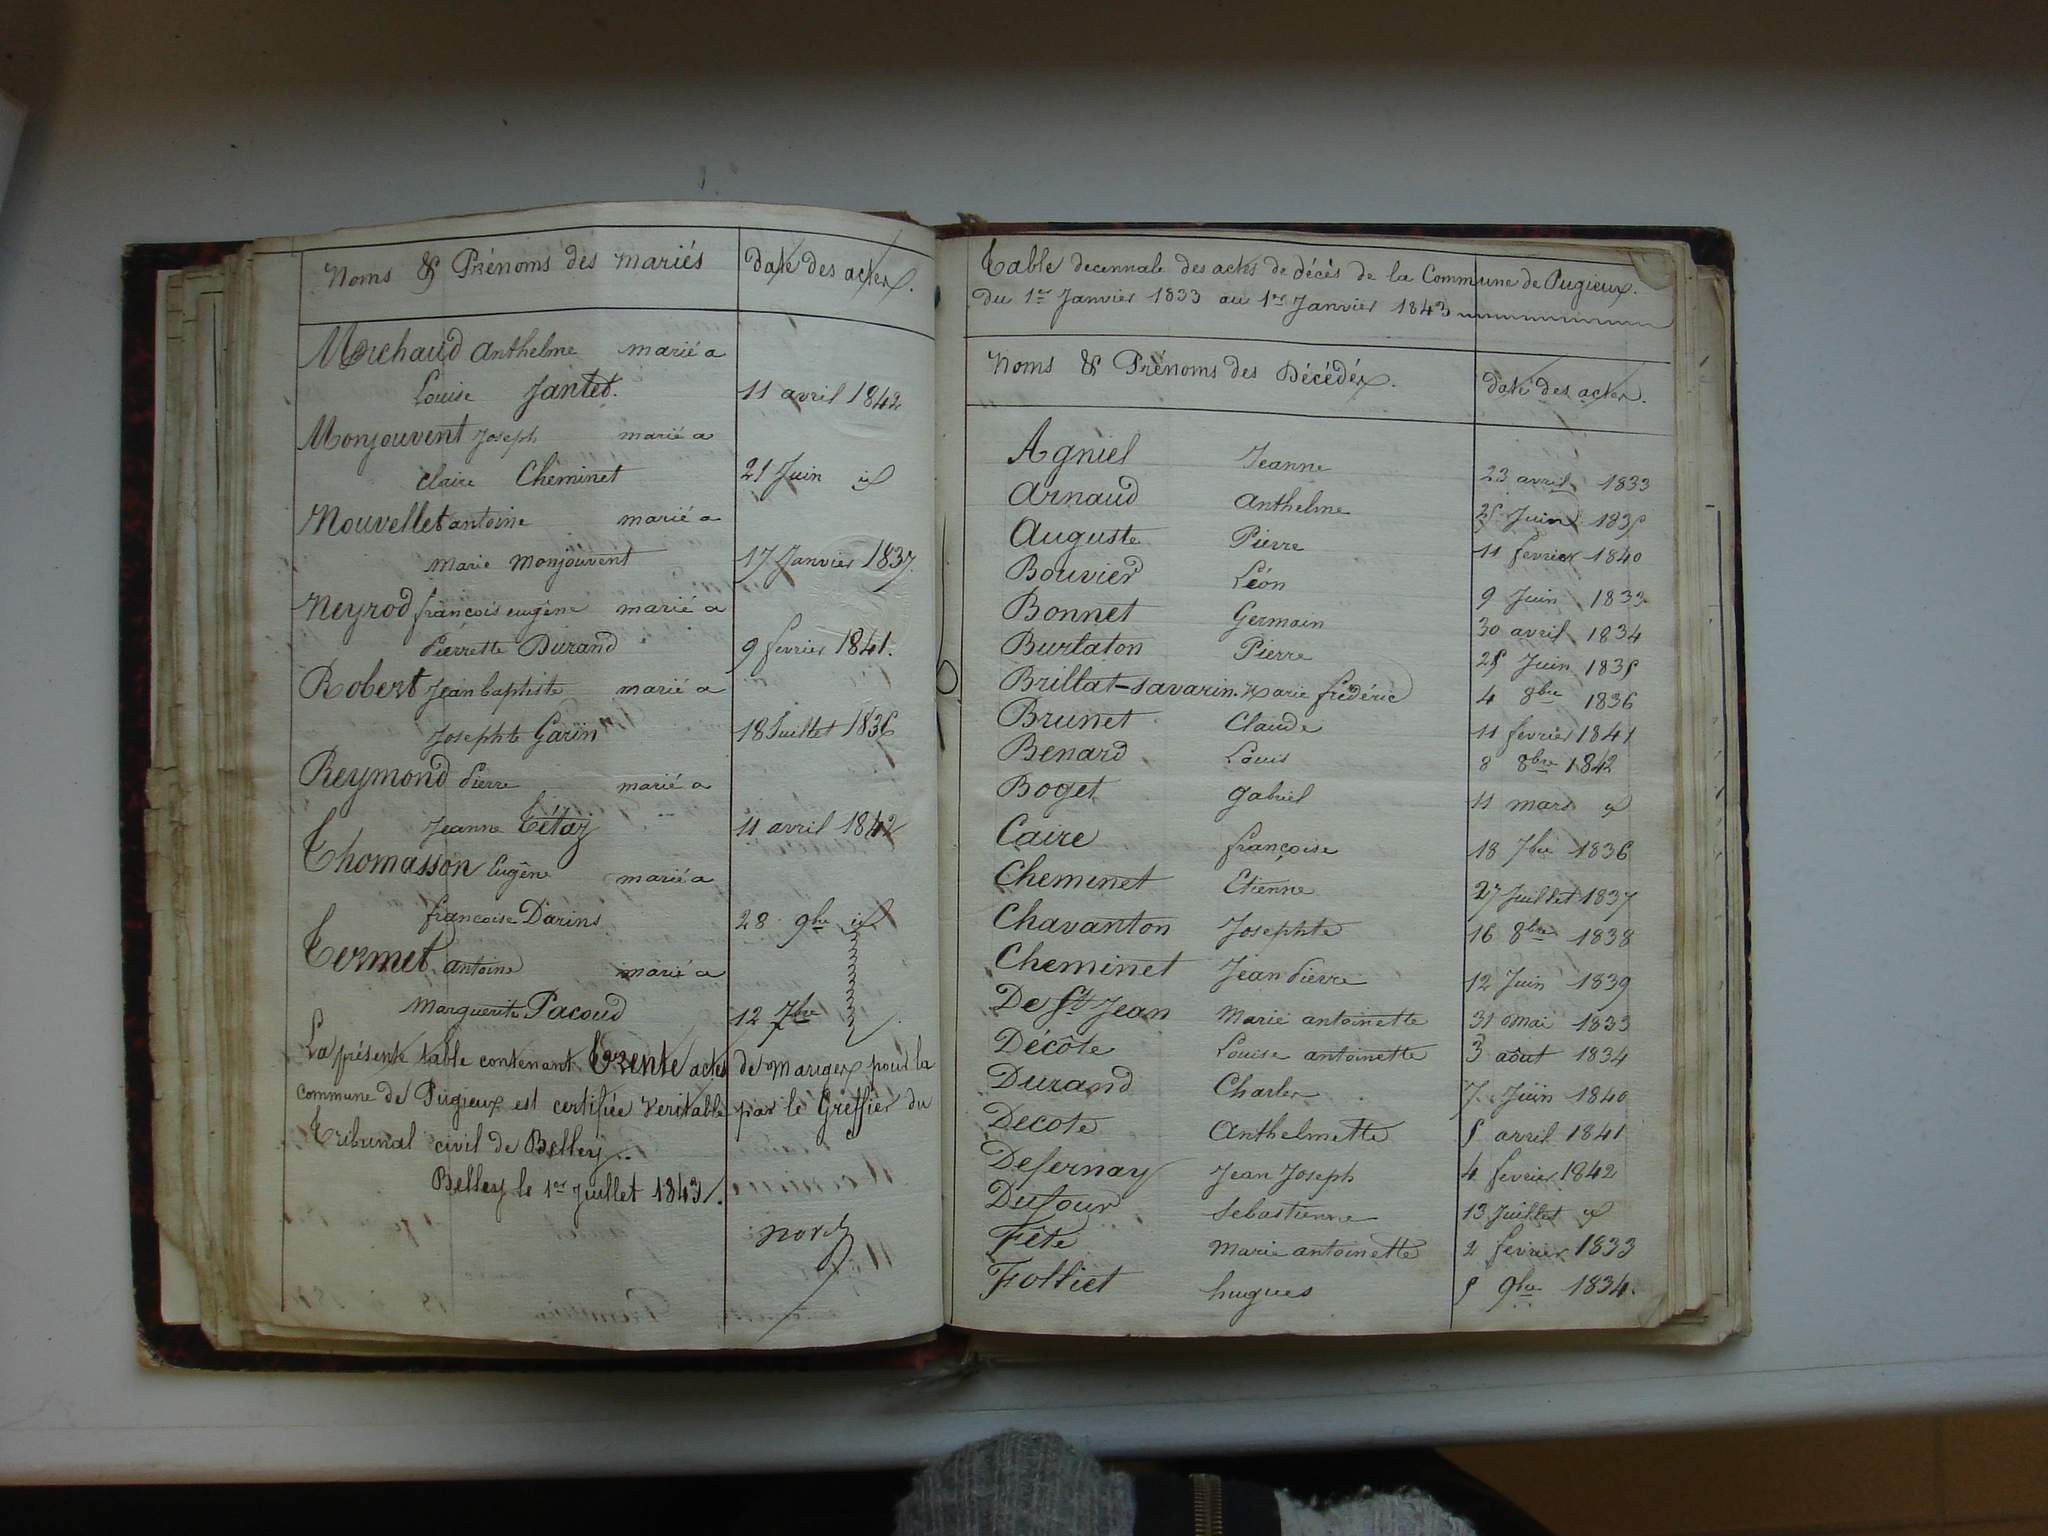 Noms & Prénoms des mariés date des actes.
Marchaud Anthelme marié a
Louise Jantet. 11 avril 1842
Monjouvent Joseph marié a
Claire Cheminet 21 Juin id
Nouvellet antoine marié a
Marie Monjouvent 17 Janvier 1837.
Neyrod françois eugène marié a
Pierrette Durand 9 fevrier 1841.
Robert Jean baptiste marié a
Josephte Garin 18 Juillet 1836
Reymond Pierre marié a
Jeanne Tétaz 11 avril 1842
Thomasson Eugêne marié a
françoise Darins 28 9bre id
Termet antoine marié a
Marguerite Pacoud 12 7bre
La présente table contenant trente actes de mariges pour la
commune de Pugieux est certifiée veritable par le Greffier du
Tribunal civil de Belley.
Belley le 1er Juillet 1843.
Table decennale des actes de décès de la Commune de Pugieux.
Du 1er Janvier 1833 au 1er Janvier 1843
Noms & Prénoms des Décédés. date des actes.
Agniel Jeanne 23 avril 1833
Arnaud Anthelme 25 Juin 1835
Auguste Pierre 11 fevrier 1840
Bouvier Léon 9 Juin 1833
Bonnet Germain 30 avril 1834
Burlaton Pierre 25 Juin 1835
Brillat-Savarin. Marie fréderic 4 8bre 1836
Brunet Claude 11 fevrier 1841
Benard Louis 8 8bre 1842
Boget gabriel 11 mars id
Caire françoise 18 7bre 1836
Cheminet Etienne 27 Juillet 1837
Chavanton Josephte 16 8bre 1838
Cheminet Jean Pierre 12 Juin 1839
De St Jean Marie antoinette 31 mai 1833
Décôte Louise antoinette 3 août 1834
Durand Charles 7 Juin 1840
Decote Anthelmette 5 avril 1841
Defernay Jean Joseph 4 fevrier 1842
Dufour Sebastienne 13 Juillet id
Fête Marie antoinette 2 fevrier 1833
Folliet hugues 5 9bre 1834.